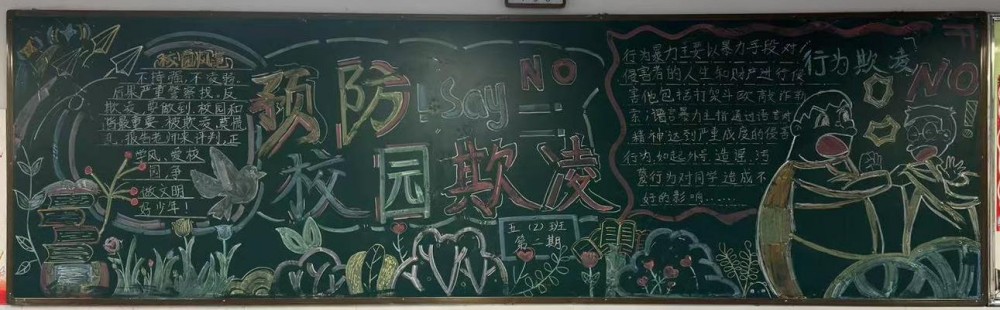 校园欺凌
不恃强、不凌弱、
后果严重警察找。反
欺凌，要做到，校园和
谐最重要。被欺凌，莫慌
乱，报告老师来评判。正
学风、爱校
园，争
做文明
好少年！
预防
Say NO
校园欺凌
五（2）班
第二期
行为暴力主要以暴力手段对
侵害者的人生和财产进行侵
害他包括打架斗殴敲诈勒
索，语言暴力主指通过语言对
精神达到严重成度的侵害
行为，如起外号、造谣、污
蔑行为对同学造成不
好的影响……
行为欺凌
NO